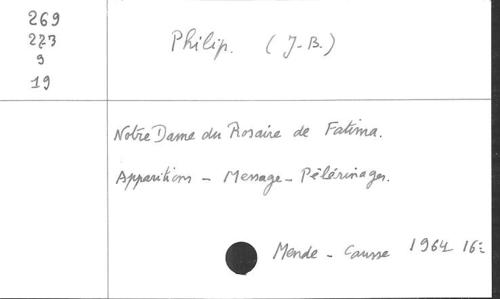 269
273
9
19
Philip. (J-B.)
Notre Dame du Rosaire de Fatima.
Apparitions - Message - Pèlérinages.
Mende - Causse 1964 16=